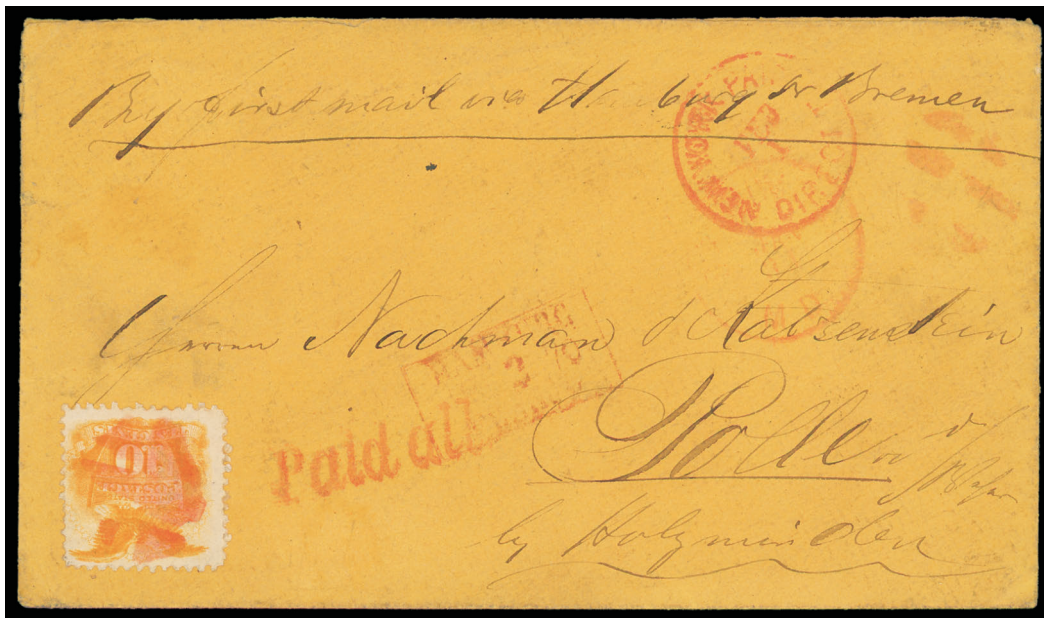 By first mail via Hamburg or Bremen
NEW YORK PAID ALL
FEB
DIR
Herren Nachman & Katzenstein
HAMBURG
2 70
Paid all
Polle
by Holzminden
MD
10